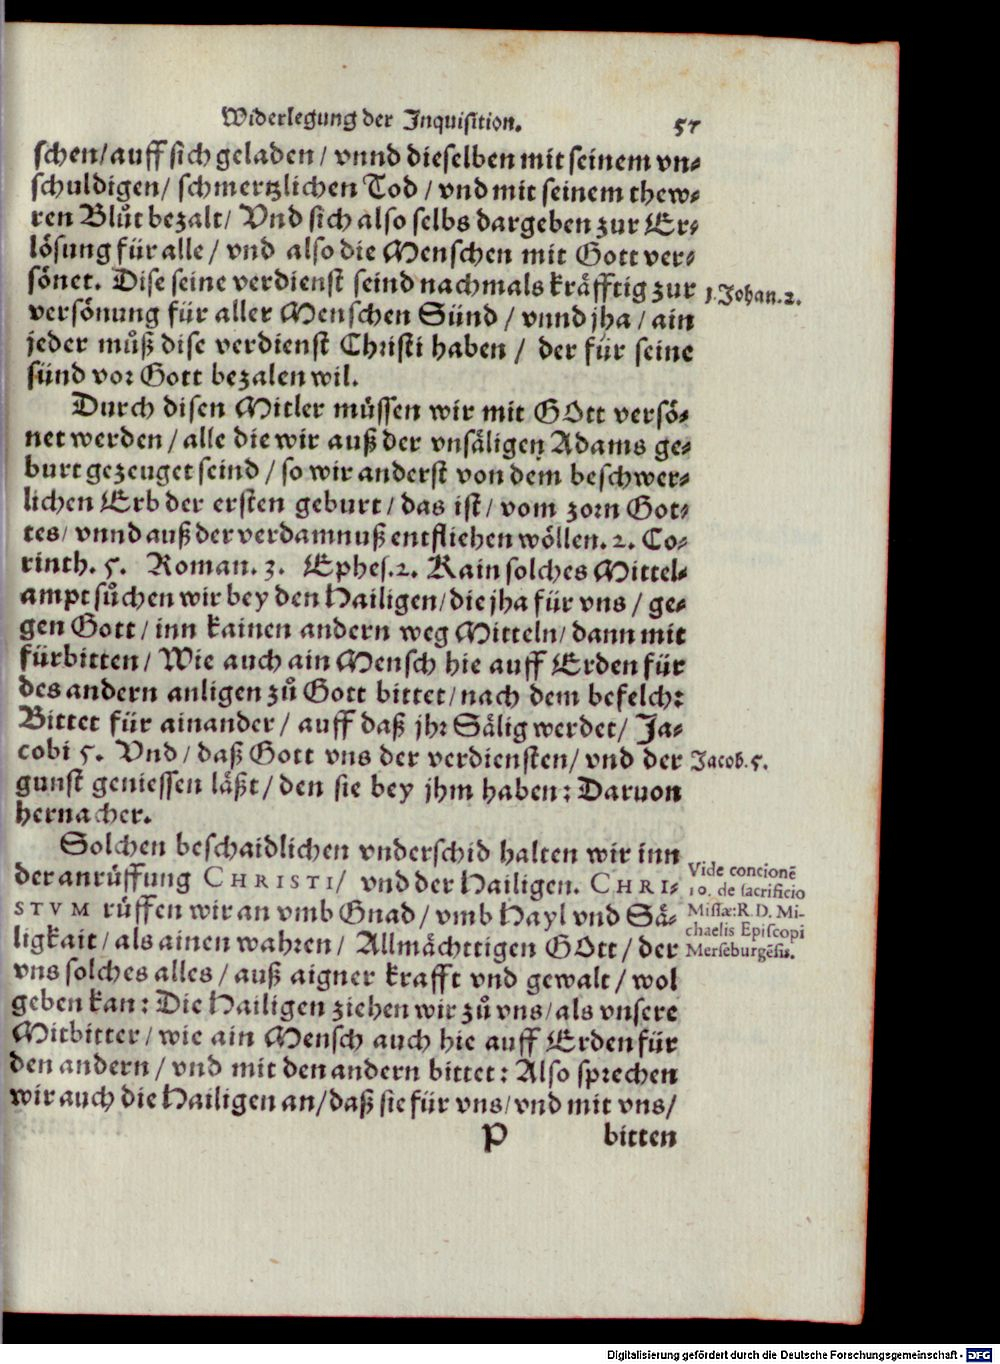 Widerlegung der Inquisition. 57
schen/auff sich geladen / vnnd dieselben mit seinem vn⸗
schuldigen/ schmertzlichen Tod / vnd mit seinem thew⸗
ren Blůt bezalt/ Vnd sich also selbs dargeben zur Er⸗
lösung für alle / vnd also die Menschen mit Gott ver⸗
sönet. Dise seine verdienst seind nachmals kräfftig zur
1. Johan. 2.
versönung für aller Menschen Sünd / vnnd jha / ain
jeder můß dise verdienst Christi haben / der für seine
sünd vor Gott bezalen wil.
Durch disen Mitler müssen wir mit GOtt versö⸗
net werden / alle die wir auß der vnsäligen Adams ge⸗
burt gezeuget seind / so wir anderst von dem beschwer⸗
lichen Erb der ersten geburt / das ist / vom zorn Got⸗
tes/ vnnd auß der verdamnuß entfliehen wöllen. 2. Co⸗
rinth. 5. Roman. 3. Ephes. 2. Kain solches Mittel⸗
ampt sůchen wir bey den Hailigen/ die jha für vns / ge⸗
gen Gott / inn kainen andern weg Mitteln/ dann mit
fürbitten / Wie auch ain Mensch hie auff Erden für
des andern anligen zů Gott bittet / nach dem befelch:
Bittet für ainander / auff daß jhr Sälig werdet / Ja⸗
cobi 5. Vnd / daß Gott vns der verdiensten / vnd der
Jacob. 5.
gunst geniessen läßt / den sie bey jhm haben: Daruon
hernacher.
Solchen beschaidlichen vnderschid halten wir inn
der anrüffung CHRISTI/ vnd der Hailigen. CHRI⸗
STVM rüffen wir an vmb Gnad / vmb Hayl vnd Sä⸗
ligkait / als ainen wahren / Allmächttigen GOtt / der
vns solches alles / auß aigner krafft vnd gewalt / wol
geben kan: Die Hailigen ziehen wir zů vns / als vnsere
Mitbitter / wie ain Mensch auch hie auff Erden für
den andern / vnd mit den andern bittet: Also sprechen
wir auch die Hailigen an/daß sie für vns/vnd mit vns/
Vide concionē
10. de sacrificio
Missæ: R. D. Mi-
chaelis Episcopi
Merseburgēsis.
P bitten
Digitalisierung gefördert durch die Deutsche Forschungsgemeinschaft - DFG